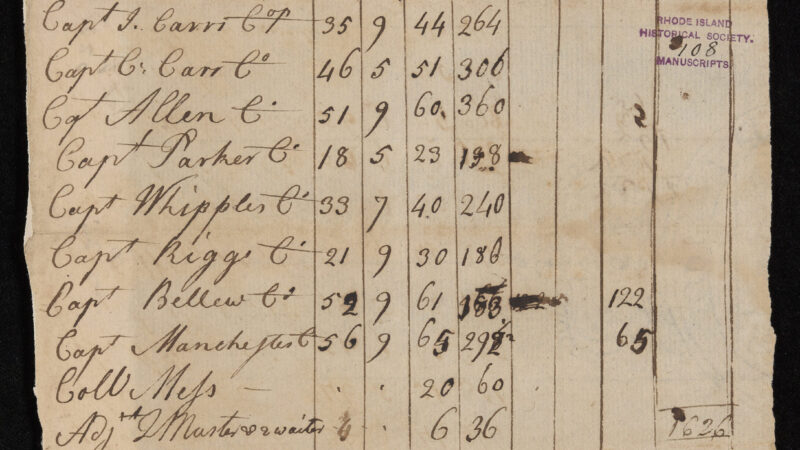 Capt J. Carrs Cop 35 9 44 264
RHODE ISLAND
HISTORICAL SOCIETY.
108
MANUSCRIPTS
Capt C. Carr Co 46 5 51 306
Cat Allen Co 51 9 60 360 2
Capt Parker Co 18 5 23 138
Capt Whipples Co 33 7 40 240
Capt Riggs Co 21 9 30 186
Capt Bellew Co 52 9 61 183 122
Capt Manchester C 56 9 65 292 65
Coll Mess — . . 20 60
Adjt 2 Master & 2 waiter 6 . 6 36 1626